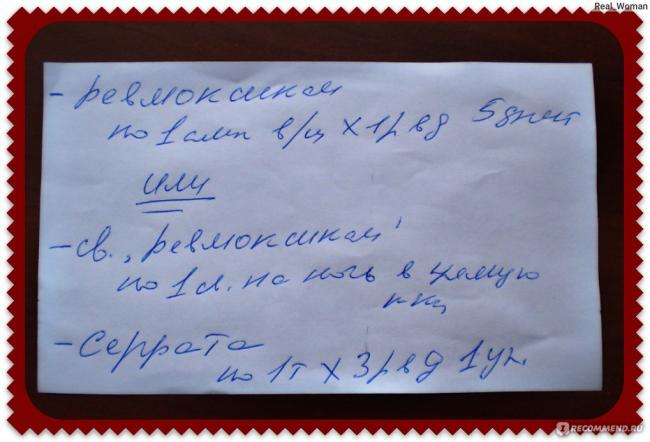 Real_Woman
- ревмоксикам
по 1 амп в/м х 1 р в д 5 дней
или
- св. „ревмоксикам"
по 1 л. на ночь в прямую
кку
- Серрата
по 1т х 3 р в д 1 уп.
I RECOMMEND.RU